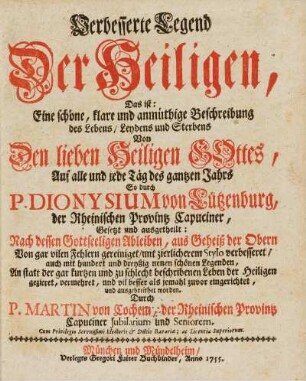 Verbesserte Legend
Der Heiligen,
Das ist:
Eine schöne, klare und anmüthige Beschreibung
des Lebens/ Leydens und Sterbens
Von
Den lieben Heiligen GOttes,
Auf alle und jede Täg des gantzen Jahrs
So durch
P. DIONYSIUM von Lützenburg,
der Rheinischen Provintz Capuciner,
Gesetzt und ausgetheilt:
Nach dessen Gottseeligen Ableiben, aus Geheiß der Obern
Von gar vilen Fehlern gereiniget/ mit zierlicherem Stylo verbesseret/
auch mit hundert und dreyßig neuen schönen Legenden,
An statt der gar kurtzen und zu schlecht beschribenen Leben der Heiligen
gezieret, vermehret, und vil besser als jemahl zuvor eingerichtet,
und ausgeführet worden.
Durch
P. MARTIN von Cochem, der Rheinischen Provintz
Capuciner Jubilarium und Seniorem.
Cum Privilegio Serenissimi Electoris & Ducis Bavariæ; ac Licentia Superiorum.
München und Mündelheim/
Verlegts Gregori Kaltner Buchbinder, Anno 1755.